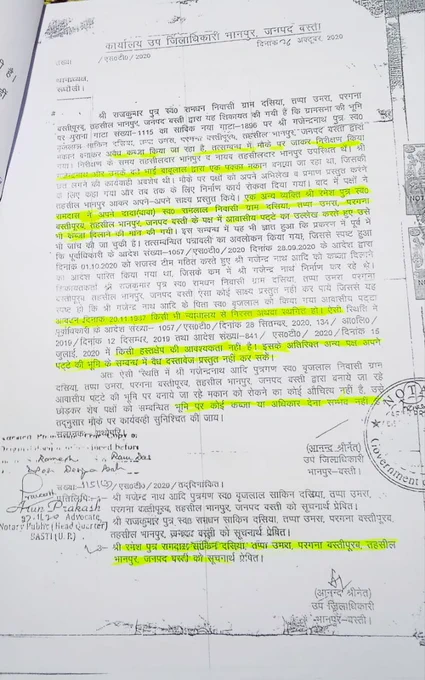 कार्यालय उप जिलाधिकारी भानपुर, जनपद बस्ती
/एस0टी0/2020
दिनांक 28 अक्टूबर, 2020
थानाध्यक्ष,
श्री राजकुमार पुत्र स्व0 समधन निवासी ग्राम दसिया, तप्पा उमरा, परगना
बस्तीपूरब, तहसील भानपुर, जनपद बस्ती द्वारा यह शिकायत की गयी है कि ग्रामसभा की भूमि
पर पुराना गाटा संख्या-1115 का सार्विक नया गाटा-1896 पर श्री गजेन्द्रनाथ पुत्र स्व0
बृजलाल साकिन दसिया, तप्पा उमरा, परगना बस्तीपूरब, तहसील भानपुर, जनपद बस्ती द्वारा
मकान बनाकर अवैध कब्जा किया जा रहा है, तत्सम्बन्ध में मौके पर जाकर निरीक्षण किया
गया। निरीक्षण के समय तहसीलदार भानपुर व नायब तहसीलदार भानपुर उपस्थित थे। श्री
भाई बाबूलाल द्वारा एक पक्का मकान बनाया जा रहा था, जिसकी
छत लगने की कार्यवाही अवशेष थी। मौके पर पक्षों को अपने अभिलेख व प्रमाण प्रस्तुत करने
को कहा गया और तब तक के लिए निर्माण कार्य रोकवा दिया गया। बाद में पक्षों ने
तहसील भानपुर आकर अपने-अपने साक्ष्य प्रस्तुत किये। एक अन्य व्यक्ति श्री रमेश पुत्र स्व0
रामदास ने अपने दादा(बाबा) स्व0 रामलाल निवासी ग्राम दसिया, तप्पा उमरा, परगना
बस्तीपूरब, तहसील भानपुर, जनपद बस्ती के पक्ष में आवासीय पट्टे का उल्लेख करते हुए उसे
भी कब्जा दिलाने की मांग की गयी। इस सम्बन्ध में यह भी ज्ञात हुआ कि प्रकरण में पूर्व में
भी जांच की जा चुकी है। तत्सम्बन्धित पत्रावली का अवलोकन किया गया, जिससे स्पष्ट हुआ
कि पूर्वाधिकारी के आदेश संख्या-1057/एस0टी0/2020 दिनांक 28.09.2020 के आदेश द्वारा
दिनांक 01.10.2020 को राजस्व टीम गठित करते हुए श्री गजेन्द्र नाथ आदि को कब्जा दिलाने
का आदेश पारित किया गया था, जिसके क्रम में श्री गजेन्द्र नाथ निर्माण कर रहे थे।
शिकायतकर्ता श्री राजकुमार पुत्र स्व0 समधन निवासी ग्राम दसिया, तप्पा उमरा, परगना
बस्तीपूरब, तहसील भानपुर, जनपद बस्ती ऐसा कोई साक्ष्य प्रस्तुत नहीं कर पाये जिससे यह
स्पष्ट हो कि श्री गजेन्द्र नाथ आदि के पिता स्व0 बृजलाल को किया गया आवासीय पट्टा
आवंटन दिनांक 20.11.1987 किसी भी न्यायालय से निरस्त अथवा स्थगित हो। ऐसी स्थिति में
पूर्वाधिकारी के आदेश संख्या- 1057/एस0टी0/2020 दिनांक 28 सितम्बर, 2020, 134/अ0लि0/
2019/दिनांक 12 दिसम्बर, 2019 तथा आदेश संख्या-841/एस0टी0/2020, दिनांक 15
जुलाई, 2020 में किसी हस्तक्षेप की आवश्यकता नहीं है। इसके अतिरिक्त अन्य पक्ष अपने
पट्टे की भूमि के सम्बन्ध में वैध दस्तावेज प्रस्तुत नहीं कर सके।
अतः ऐसी स्थिति में श्री गजेन्द्र नाथ आदि पुत्रगण स्व0 बृजलाल निवासी ग्राम
दसिया, तप्पा उमरा, परगना बस्तीपूरब, तहसील भानपुर, जनपद बस्ती द्वारा बनाये जा रहे
आवासीय पट्टे की भूमि पर बनाये जा रहे मकान को रोकने का कोई औचित्य नहीं है, उसे
छोड़कर शेष पक्षों को सम्बन्धित भूमि पर कोई कब्जा या अधिकार देना सम्भव नहीं
तद्नुसार मौके पर कार्यवाही सुनिश्चित की जाय।
(आनन्द श्रीनेत)
उप जिलाधिकारी
भानपुर-बस्ती।
NOTA
Government
Arun Prakash
27.11.20 Advocate
Notary Public (Head Quarter)
BASTI (U.P.)
/एस0टी0/2020/तद्दिनांकित।
प्रतिलिपि:-
श्री गजेन्द्र नाथ आदि पुत्रगण स्व0 बृजलाल साकिन दसिया, तप्पा उमरा,
परगना बस्तीपूरब, तहसील भानपुर, जनपद बस्ती को सूचनार्थ प्रेषित।
श्री राजकुमार पुत्र स्व0 समधन साकिन दसिया, तप्पा उमरा, परगना बस्तीपूरब,
तहसील भानपुर, जनपद बस्ती को सूचनार्थ प्रेषित।
श्री रमेश पुत्र रामदास साकिन दसिया, तप्पा उमरा, परगना बस्तीपूरब, तहसील
भानपुर, जनपद बस्ती को सूचनार्थ प्रेषित।
(आनन्द श्रीनेत)
उप जिलाधिकारी
भानपुर-बस्ती।